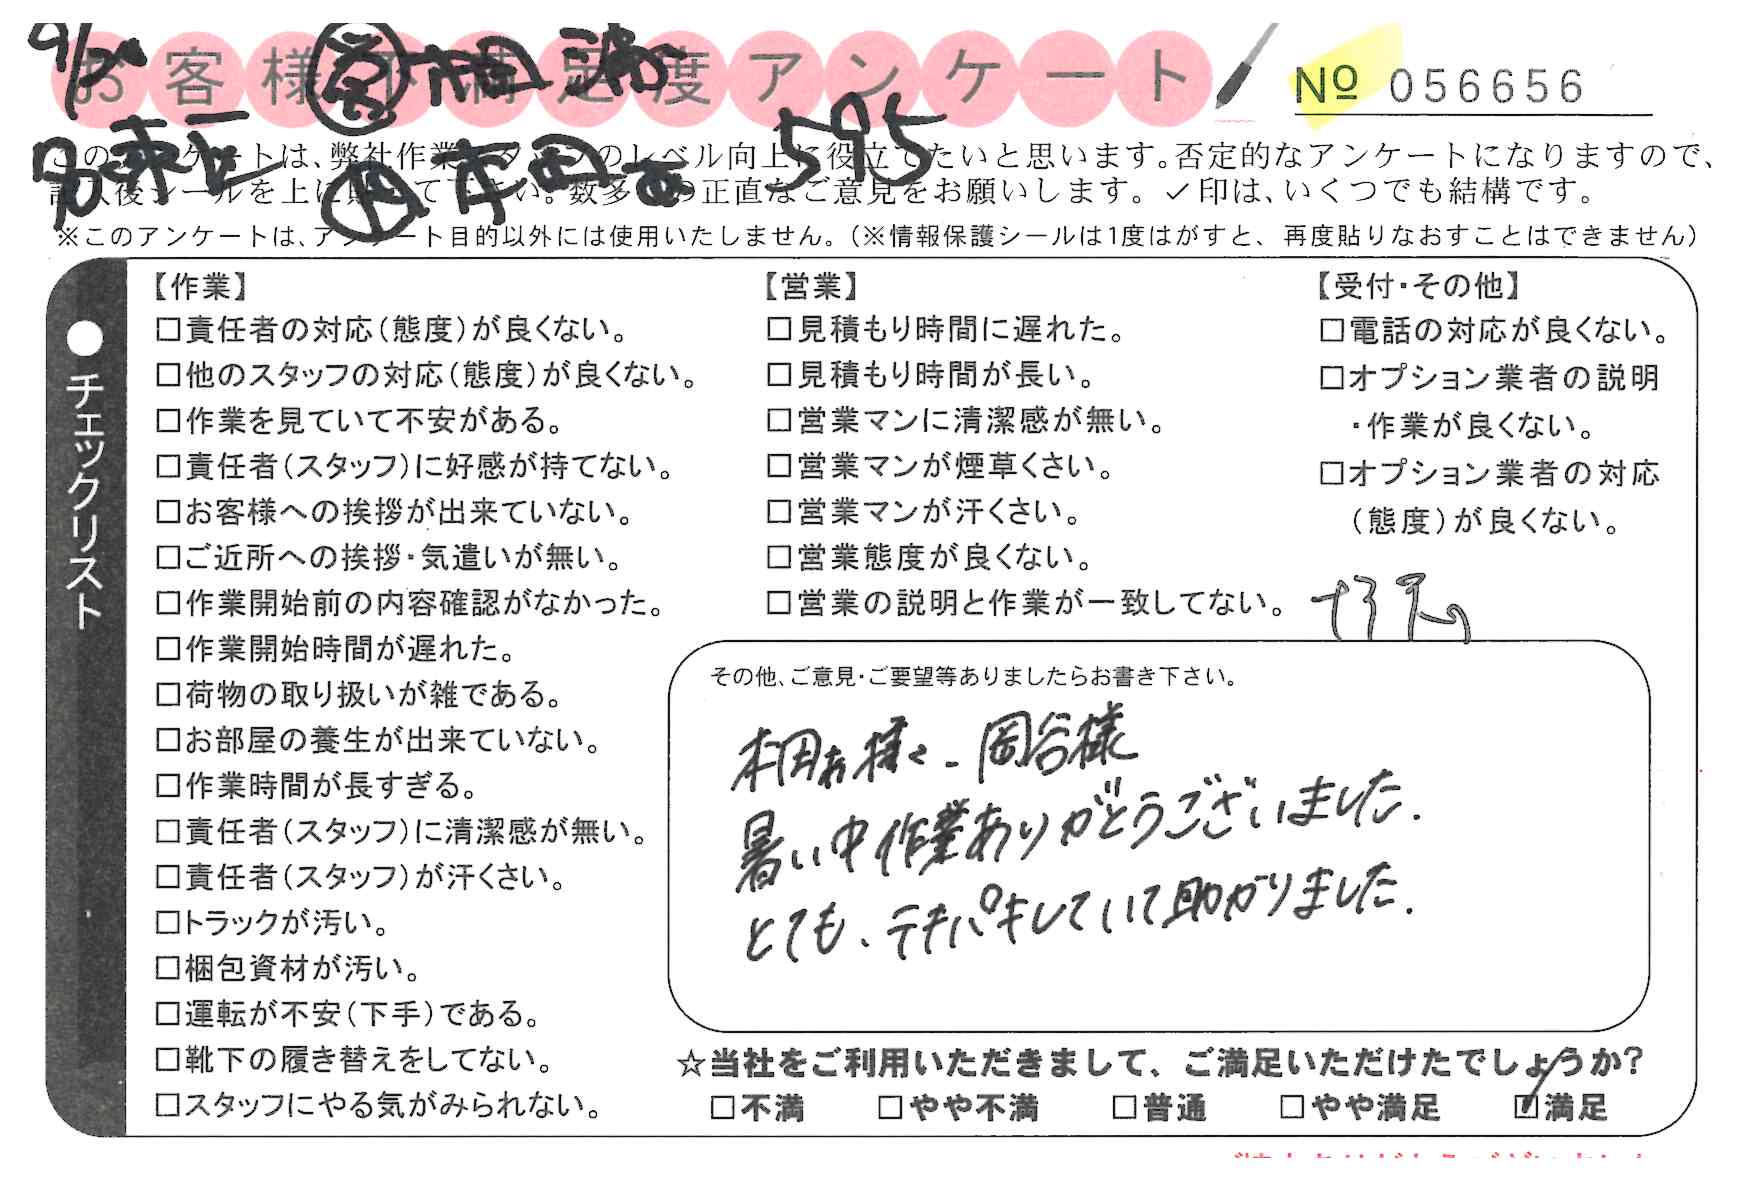 お客様不満足度アンケート
№ 056656
595
このアンケートは、弊社作業スタッフのレベル向上に役立てたいと思います。否定的なアンケートになりますので、
記入後シールを上に貼って下さい。数多くの正直なご意見をお願いします。✓印は、いくつでも結構です。
※このアンケートは、アンケート目的以外には使用いたしません。(※情報保護シールは1度はがすと、再度貼りなおすことはできません)
●チェックリスト
【作業】
□責任者の対応(態度)が良くない。
□他のスタッフの対応(態度)が良くない。
□作業を見ていて不安がある。
□責任者(スタッフ)に好感が持てない。
□お客様への挨拶が出来ていない。
□ご近所への挨拶・気遣いが無い。
□作業開始前の内容確認がなかった。
□作業開始時間が遅れた。
□荷物の取り扱いが雑である。
□お部屋の養生が出来ていない。
□作業時間が長すぎる。
□責任者(スタッフ)に清潔感が無い。
□責任者(スタッフ)が汗くさい。
□トラックが汚い。
□梱包資材が汚い。
□運転が不安(下手)である。
□靴下の履き替えをしてない。
□スタッフにやる気がみられない。
【営業】
□見積もり時間に遅れた。
□見積もり時間が長い。
□営業マンに清潔感が無い。
□営業マンが煙草くさい。
□営業マンが汗くさい。
□営業態度が良くない。
□営業の説明と作業が一致してない。
【受付・その他】
□電話の対応が良くない。
□オプション業者の説明
・作業が良くない。
□オプション業者の対応
(態度)が良くない。
その他、ご意見・ご要望等ありましたらお書き下さい。
本田様、岡谷様
暑い中作業ありがとうございました.
とても、テキパキしていて助かりました.
☆当社をご利用いただきまして、ご満足いただけたでしょうか?
□不満 □やや不満 □普通 □やや満足 ☑満足